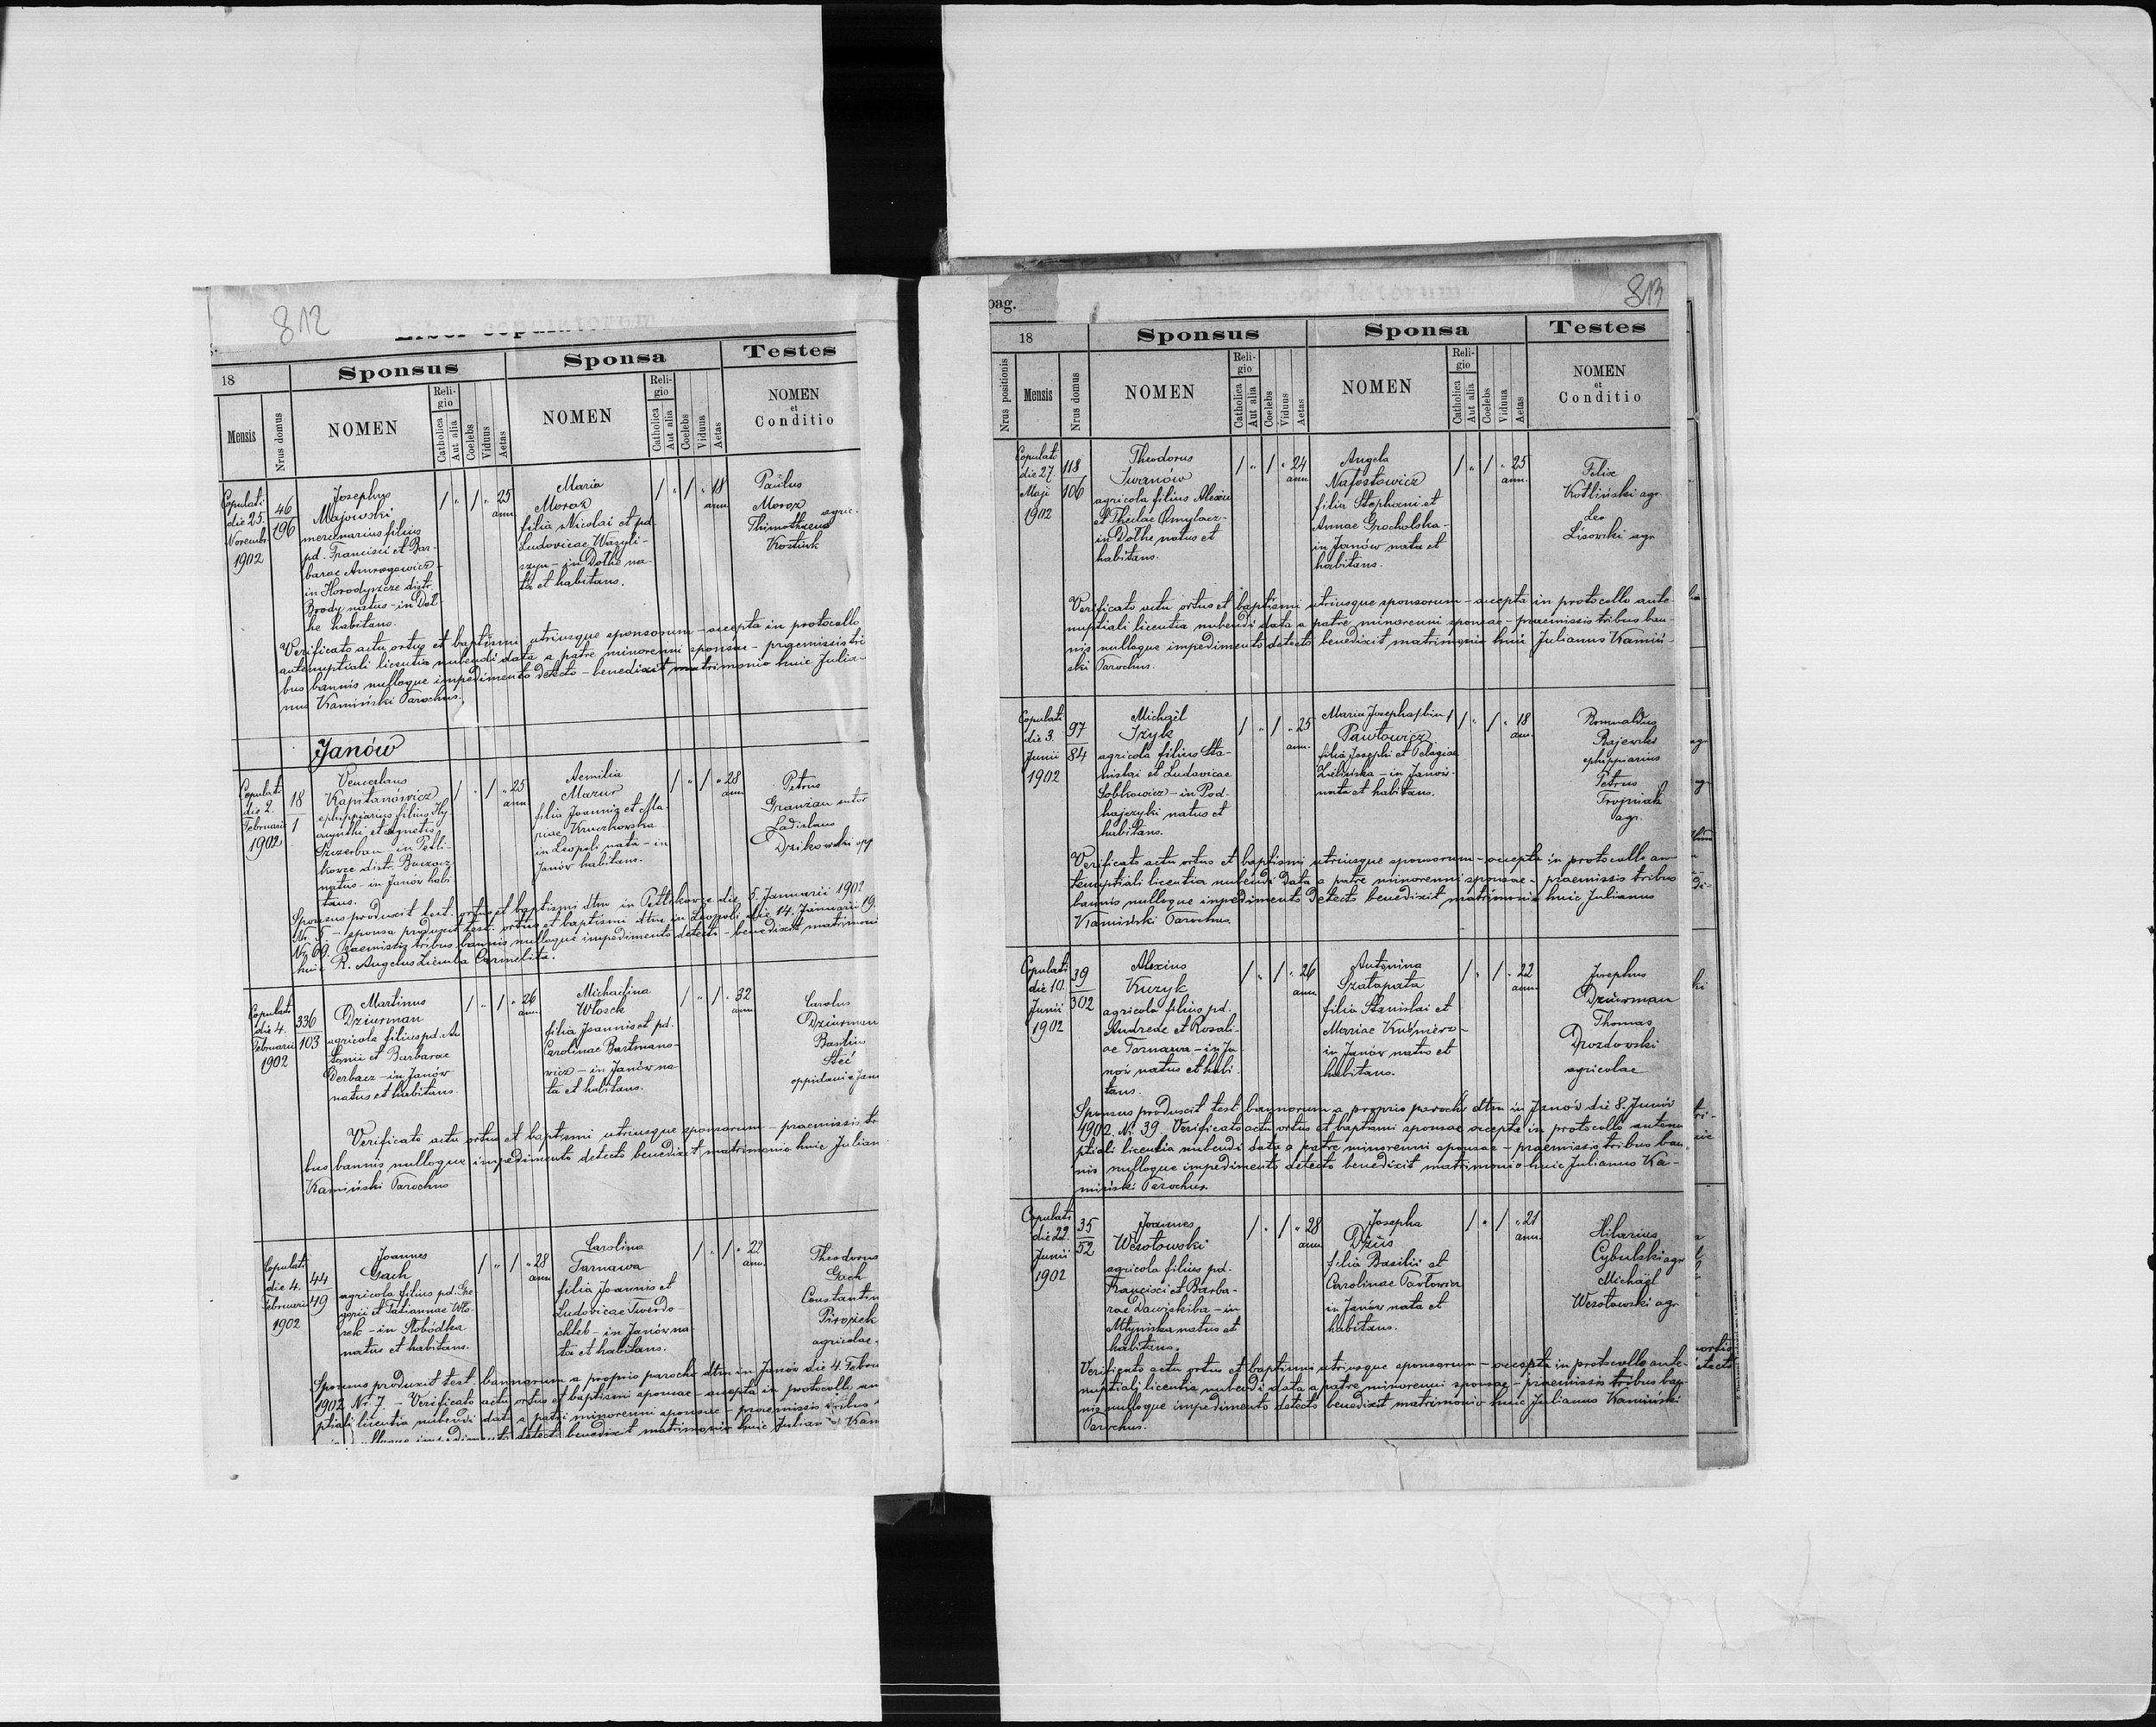 812
Liber copulatorum
18
Sponsus
Sponsa
Testes
Mensis
Nrus domus
NOMEN
Religio
Catholica
Aut alia
Coelebs
Viduus
Aetas
NOMEN
Religio
Catholica
Aut alia
Coelebs
Vidua
Aetas
NOMEN
et
Conditio
Copulati
die 25.
Novembr.
1902
46
196
Josephus
Majowski
mercenarius filius
pd. Francisci et Bar-
barae
in Horodyszcze distr.
Brody natus - in Doł
he habitans.
1 " 1 " 25
ann.
Maria
Moroz
filia Nicolai et pd.
Ludovicae Wasyli-
szyn - in Dołhe na-
ta et habitans.
1 " 1 " 18
ann.
Paulus
Moroz
Thimothaeus agric.
Kostiuk
Verificato actu ortus et baptismi utriusque sponsorum - accepta in protocollo
antenuptiali licentia nubendi data a patre minorenni sponsae - praemissis tri
bus bannis nulloque impedimento detecto - benedixit matrimonio huic Julia-
nus Kamiński Parochus.
Janów
Copulati
die 2.
Februarii
1902
18
1
Venceslaus
Kapitanówicz
ephippiarius filius Hy
acynthi et Agnetis
Szczerban - in Petli-
kowce distr. Buczacz
natus - in Janów habi
tans.
1 " 1 " 25
ann.
Aemilia
Mazur
filia Joannis et Ma-
riae Kruczkowska
in Leopoli nata - in
Janów habitans.
1 " 1 " 28
ann.
Petrus
Granzau sutor
Ladislaus
Dzikowski opp
Sponsus produxit test. ortus et baptismi dtm in Petlikowce die 5. Januarii 1902
Nr. 5 - sponsa produxit test. ortus et baptismi dtm in Leopoli die 14. Januarii 19.
Nr. 69. Praemissis tribus bannis nulloque impedimento detecto - benedixit matrimoni
huic R. Angelus Ziemba Carmelita.
Copulati
die 4.
Februarii
1902
336
103
Martinus
Dziurman
agricola filius pd. An
tonii et Barbarae
Derbacz - in Janów
natus et habitans.
1 " 1 " 26
ann.
Michaelina
Włosek
filia Joannis et pd.
Carolinae Bartmano-
wicz - in Janów na
ta et habitans.
1 " 1 " 32
ann.
Carolus
Dziurman
Basilius
Steć
oppidani e Jan
Verificato actu ortus et baptismi utriusque sponsorum - praemissis tri
bus bannis nulloque impedimento detecto benedixit matrimonio huic Julian
Kamiński Parochus
Copulati
die 4.
Februarii
1902
44
49
Joannes
Gach
agricola filius pd. Gre
gorii et Tatiannae Wło-
sek - in Słobódka
natus et habitans.
1 " 1 " 28
ann.
Carolina
Tarnawa
filia Joannis et
Ludovicae Twerdo
chleb - in Janów na-
ta et habitans.
1 " 1 " 22
ann.
Theodorus
Gach
Constantin
agricolae.
Sponsus produxit test. bannorum a proprio parocho dtm in Janów die 4. Febru
1902 Nr 7. - Verificato actu ortus et baptismi sponsae - accepta in protocollo an
ptiali licentia nubendi data a patre minorenni sponsae - praemissis tribus
nulloque impedimento detecto benedixit matrimonio huic Julian Kam
pag.
813
18
Sponsus
Sponsa
Testes
Nrus positionis
Mensis
Nrus domus
NOMEN
Religio
Catholica
Aut alia
Coelebs
Viduus
Aetas
NOMEN
Religio
Catholica
Aut alia
Coelebs
Vidua
Aetas
NOMEN
et
Conditio
Copulati
die 27.
Maji
1902
118
106
Theodorus
Iwanów
agricola filius Alexii
et Theclae
in Dołhe natus et
habitans.
1 " 1 " 24
ann.
Angela
Małostowicz
filia Stephani et
Annae Grocholska -
in Janów nata et
habitans.
1 " 1 " 25
ann.
Felix
Kotliński agr.
Leo
Lisowski agr
Verificato actu ortus et baptismi utriusque sponsorum - accepta in protocollo ante-
nuptiali licentia nubendi data a patre minorenni sponsae - praemissis tribus ban-
nis nulloque impedimento detecto benedixit matrimonio huic Julianus Kamiń-
ski Parochus.
Copulati
die 3.
Junii
1902
97
84
Michaël
Izyk
agricola filius Sta-
nislai et Ludovicae
Sobkowicz - in Pod-
hajczyki natus et
habitans.
1 " 1 " 25
ann.
Maria Josepha
Pawłowicz
filia Josephi et Pelagiae
Zielińska - in Janów
nata et habitans.
1 " 1 " 18
ann.
Romualdus
Rajewski
ephippiarius
Petrus
Trojniak
agr.
Verificato actu ortus et baptismi utriusque sponsorum - accepta in protocollo an-
tenuptiali licentia nubendi data a patre minorenni sponsae - praemissis tribus
bannis nulloque impedimento detecto benedixit matrimonio huic Julianus
Kamiński Parochus
Copulati
die 10.
Junii
1902
39
302
Alexius
Kuzyk
agricola filius pd.
Andreae et Rosali-
ae Tarnawa - in Ja
nów natus et habi
tans.
1 " 1 " 26
ann.
Antonina
Szałapata
filia Stanislai et
Mariae Kuśnierz -
in Janów natus et
habitans.
1 " 1 " 22
ann.
Josephus
Dziurman
Thomas
Drozdowski
agricolae
Sponsus produxit test. bannorum a proprio parocho dtm in Janów die 8. Junii
1902. Nr. 39. Verificato actu ortus et baptismi sponsae accepta in protocollo antenu
ptiali licentia nubendi data a patre minorenni sponsae - praemissis tribus ban
nis nulloque impedimento detecto benedixit matrimonio huic Julianus Ka-
miński Parochus.
Copulati
die 22.
Junii
1902
35
52
Joannes
Wesołowski
agricola filius pd.
Francisci et Barba-
rae Dawiskiba - in
Młyniska natus et
habitans.
1 " 1 " 28
ann.
Josepha
Dziis
filia Basilii et
Carolinae Pawłowicz
in Janów nata et
habitans.
1 " 1 " 21
ann.
Hilarius
Cybulski agr
Michaël
Wesołowski agr
Verificato actu ortus et baptismi utriusque sponsorum - accepta in protocollo ante-
nuptiali licentia nubendi data a patre minorenni sponsae - praemissis tribus ban
nis nulloque impedimento detecto benedixit matrimonio huic Julianus Kamiński
Parochus.